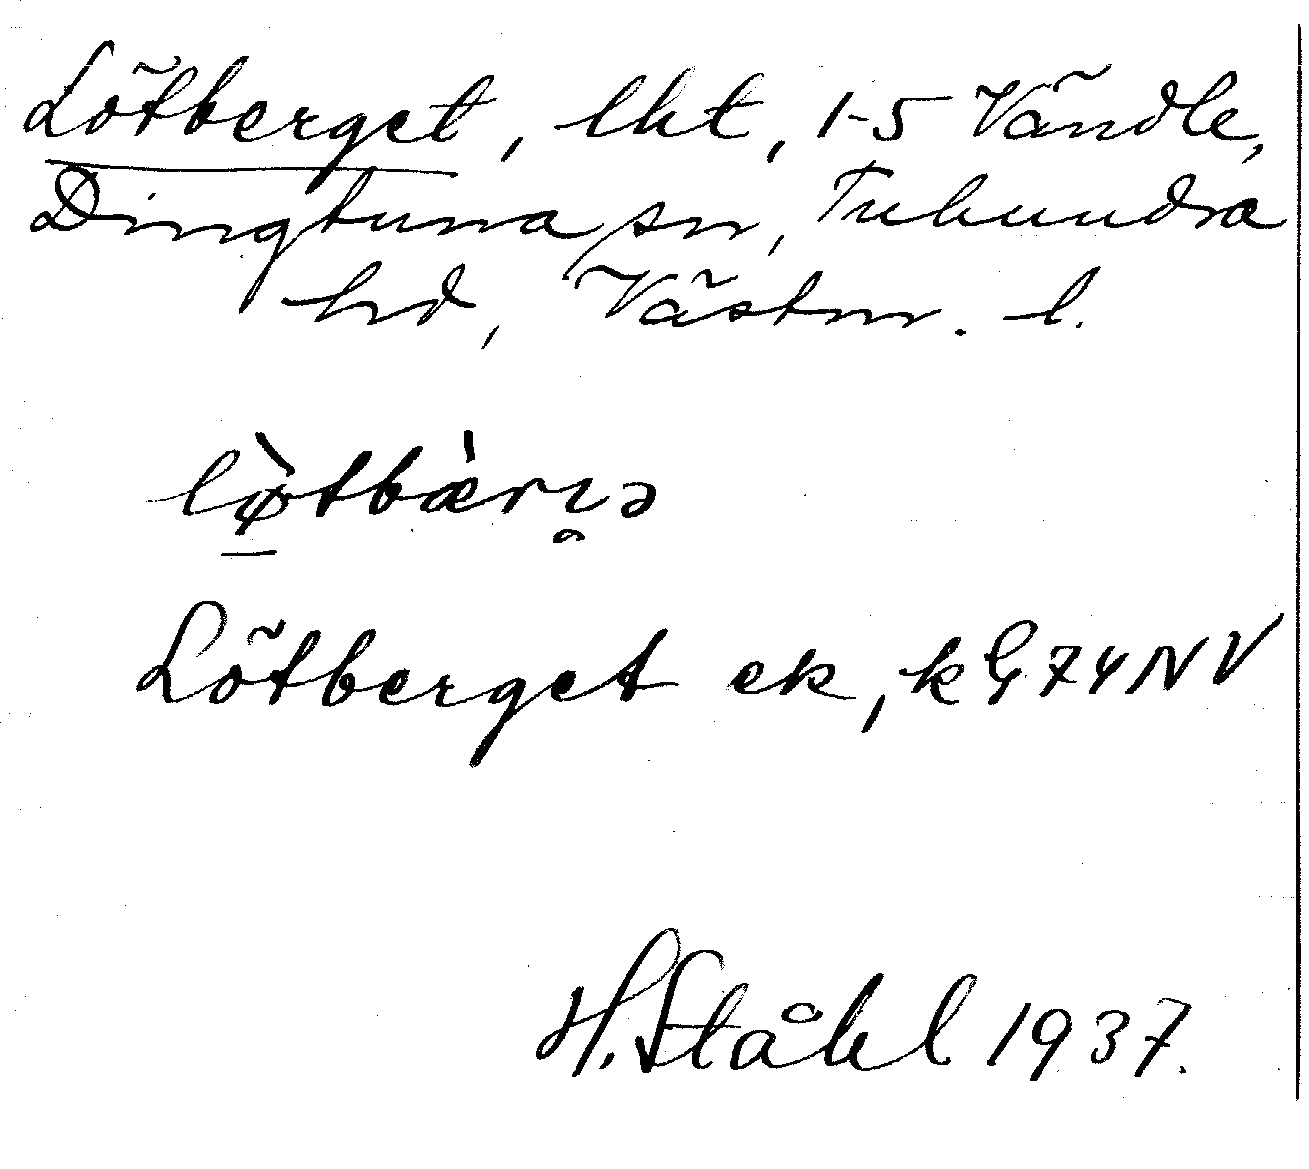 Lötberget, lht, 1-5 Vändle,
Dingtuna sn, Tuhundra
hd, Västm. l.
lø̀tbæ̀rı̥ə
Lötberget ek, kG74NV
H. Ståhl 1937.